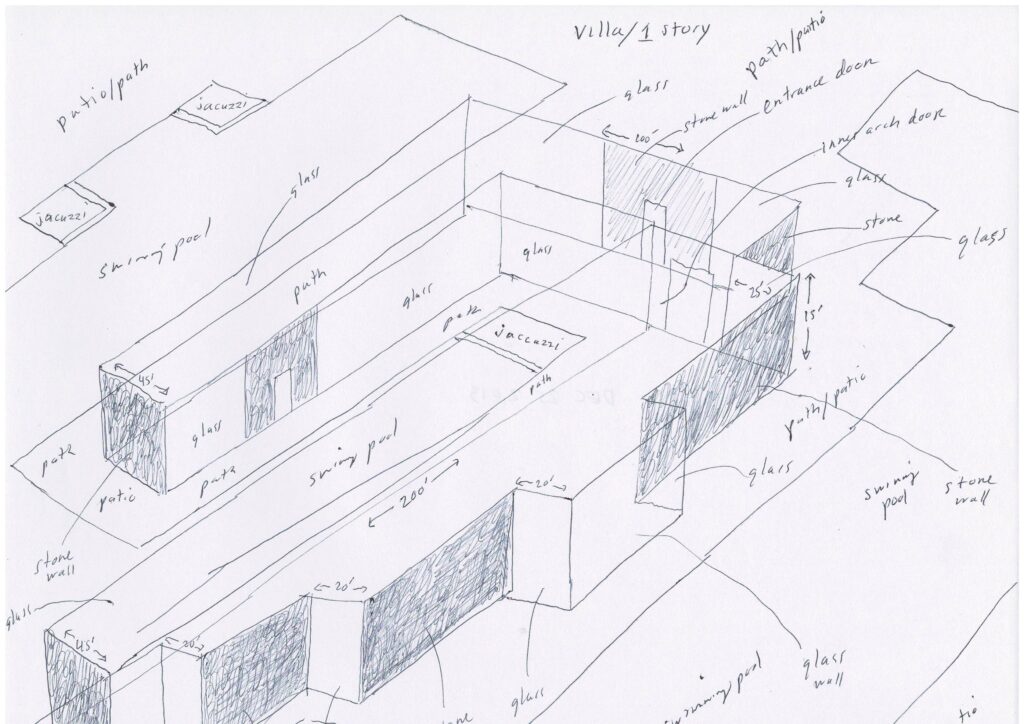 Villa/1 story
path/patio
patio/path
jacuzzi
glass
stone wall
entrance door
200'
inner arch door
glass
jacuzzi
glass
stone
glass
swimming pool
path
glass
glass
25'
15'
path
jaccuzzi
45'
path
path/patio
glass
path
swimming pool
glass
path
patio
swimming pool
stone
wall
200'
20'
stone
wall
glass
20'
45'
20'
glass
wall
glass
swimming pool